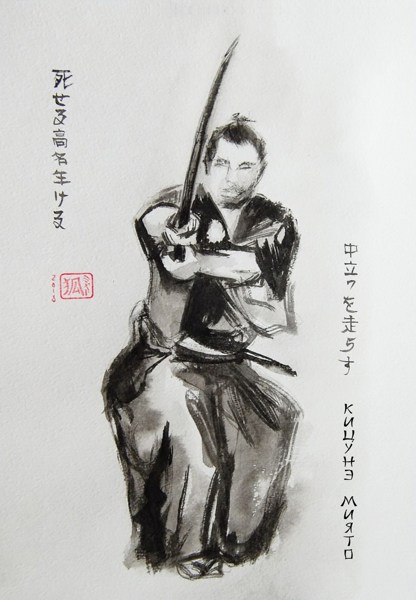 死せる高名生ける
狐
中立つを走らす
КИЦУНЭ МИЯТО